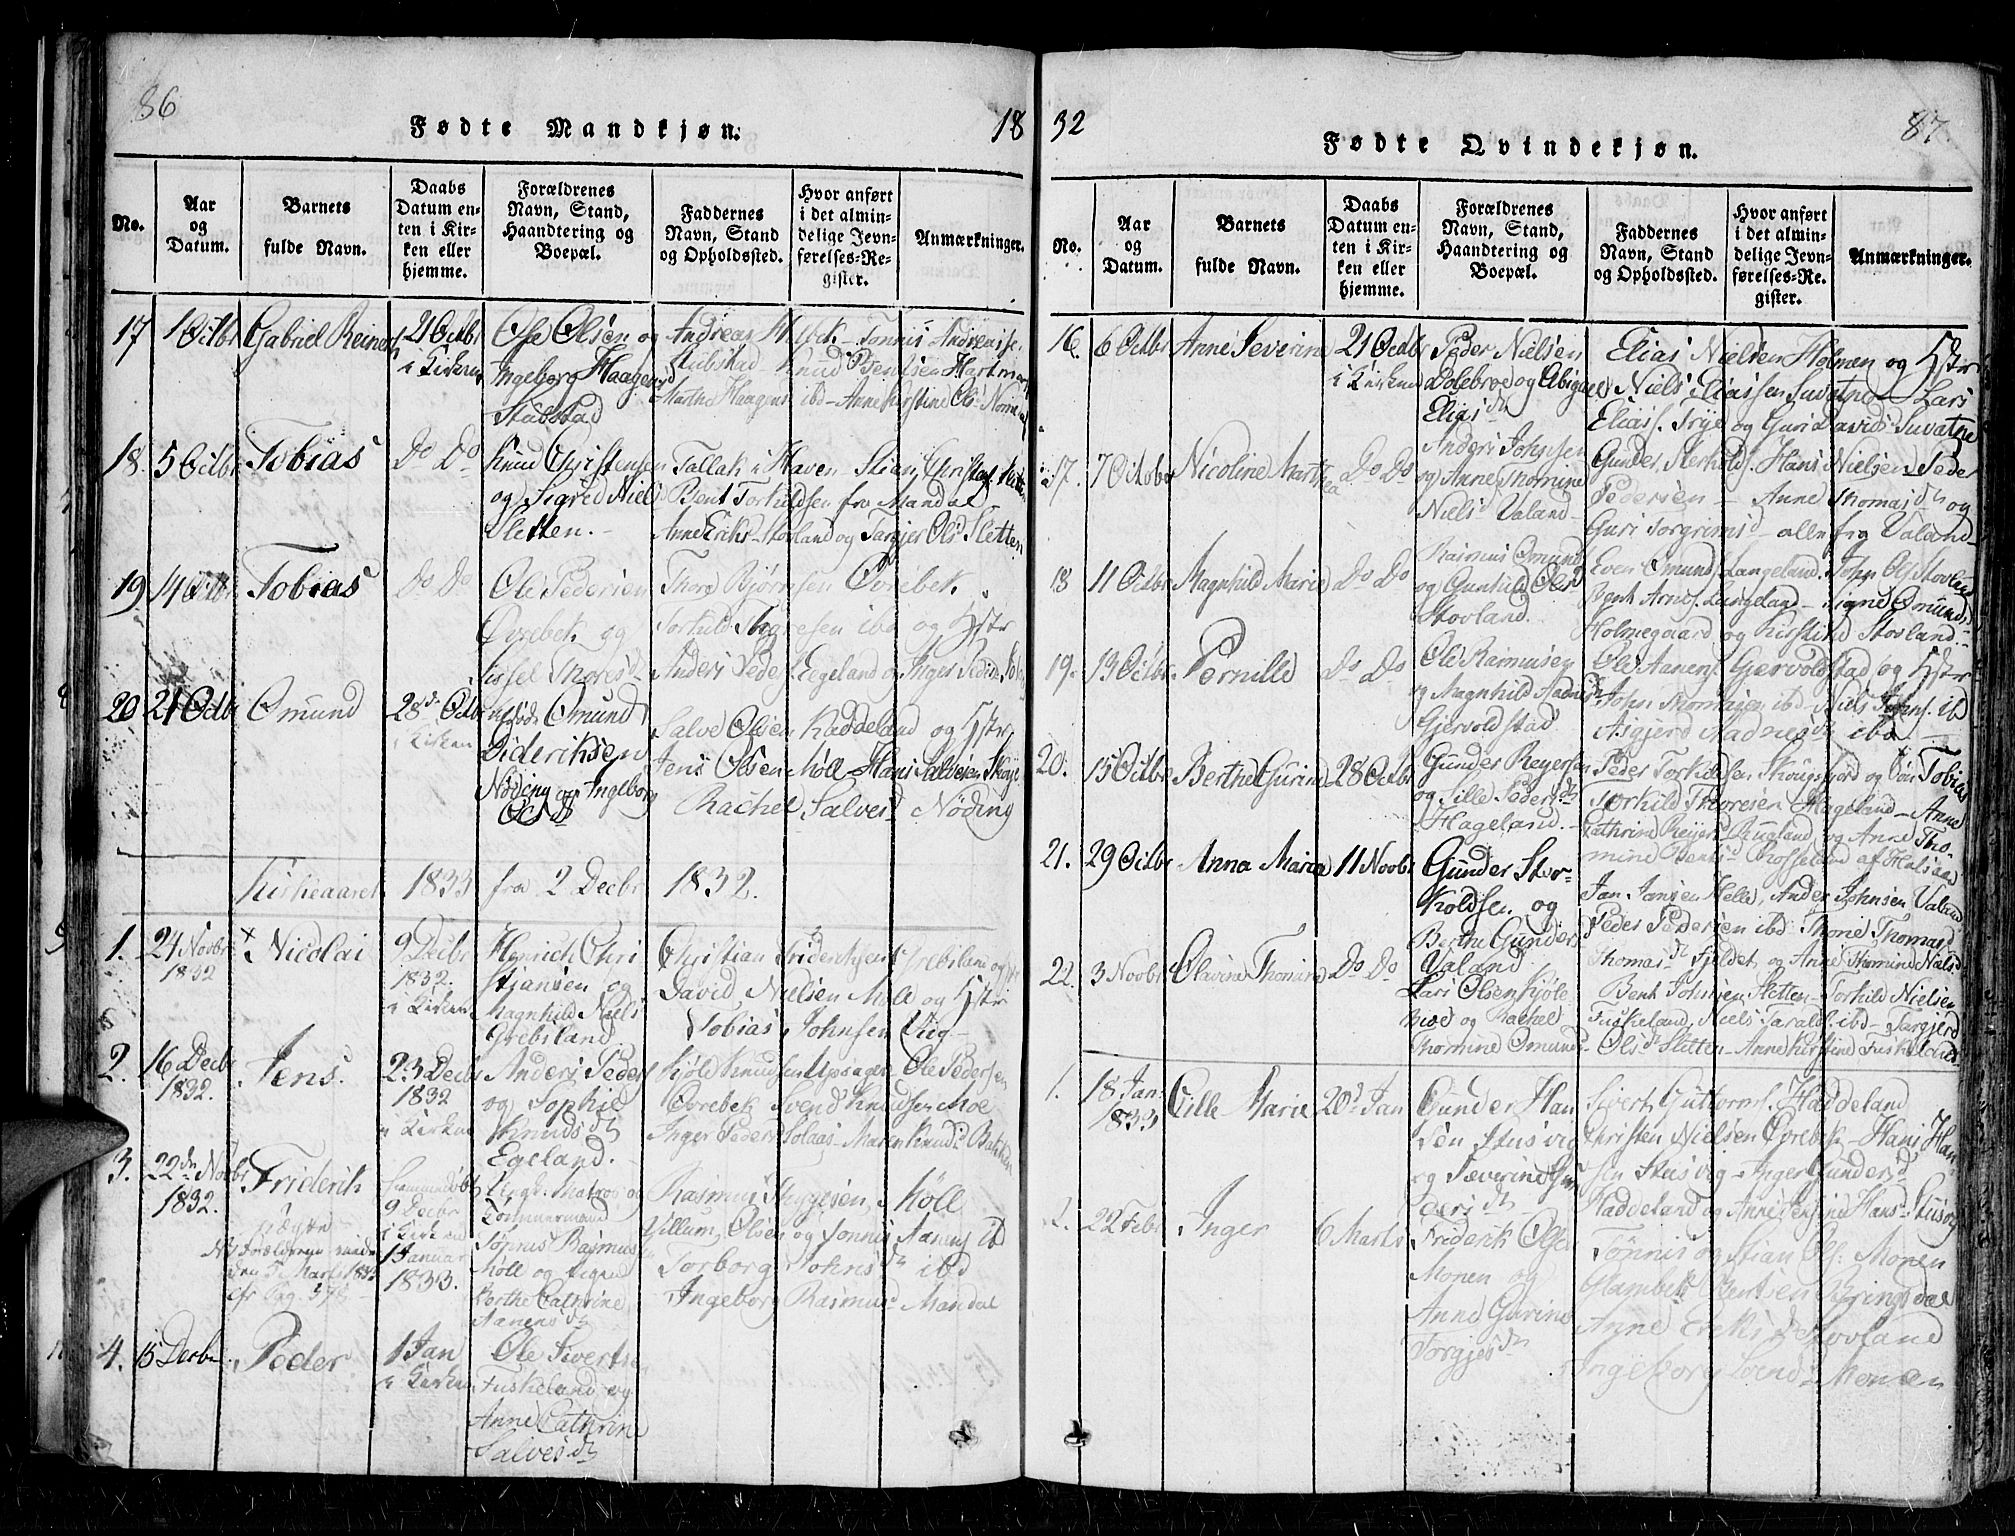 86
Fødte Mandkjøn.
18
No.
Aar
og
Datum.
Barnets
fulde Navn.
Daabs
Datum en-
ten i Kir-
ken eller
hjemme.
Forældrenes
Navn, Stand,
Haandtering og
Boepæl.
Faddernes
Navn, Stand
og Opholdssted.
Hvor anført
i det almin-
delige Jevn-
førelses-Re-
gister.
Anmærkninger.
17
1 Octbr
Gabriel
21 Octbr
i Kirken
Ole Olsen og
Ingeborg
Stubstad
Andreas
Stubstad - Knud Bentsen
18.
5 Octbr
Tobias
Do Do
Knud Christensen
og Sigred Niels
Sletten.
Tallak i Haven - Stian
Bent Torkildsen fra Mandal
Anne Eriks - Stovland og Targjer Ols Sletten
19
14 Octbr
Tobias
Do Do
Ole Pedersen
Øvrebek og
Sissel Thores
Thore Bjørnsen Øvrebek
Torkild ibd og Hstr
Anders Peders. Egeland og Inger
20
21 Octbr
Omund
28de Octbr
i Kirken
Omund
Dideriksen
Nøding og Ingeborg
Ols
Salve Olsen Haddeland og Hstr
Jens Olsen Møll - Hans Salvesen Skøye
Rachel Salvesd Nøding
Kirkeaaret 1833 fra 2 Decbr 1832.
1.
24 Novbr
1832
Nicolai
9 Decbr
1832.
i Kirken
Hinrich Chri
stjansen og
Magnhild Niels
Grebsland
Christian
David Nielsen Møll og Hstr
Tobias Johnsen
2.
16 Decbr
1832.
Jens.
23 Decbr
1832
i Kirken
Anders Peders
og Sophie
Knudsdr
Egeland.
Kjøld Knudsen Upsager Ole Pedersen
Øvrebek Svend Knudsen Moe
Inger Peders Solaas - Maren Knuds
3.
22de Novbr
1832.
Friderik
Hjemmedøbt
9 Decbr
i Kirken
1 Januar
1833.
Matros og
Tømmermand
Rasmus
Møll og
Berthe Cathrine
Aanensdr
Rasmus Møll
Villum Olsen og Tønnis Aanens ibd
Torborg Johnsdr ibd
Ingeborg Rasmusd Mandal
4.
15 Decbr
Peder
1 Jan
i Kirken
Ole Sivertsen
Fuskeland og
Anne Cathrine
Salvesdr
32
87
Fødte Qvindekjøn.
No.
Aar
og
Datum.
Barnets
fulde Navn.
Daabs
Datum en-
ten i Kir-
ken eller
hjemme.
Forældrenes
Navn, Stand,
Haandtering og
Boepæl.
Faddernes
Navn, Stand
og Opholdssted.
Hvor anført
i det almin-
delige Jevn-
førelses-Re-
gister.
Anmærkninger.
16.
6 Octbr
Anne Severine
21 Octbr
i Kirken
Peder Nielsen
Dolebroe og Abigael
Eliasdr
Elias Nielsen Holmen og Hstr
Niels Eliassen Suvatne Lars
Eliass. Trye og Guri Davids Suvatne
17.
7 October
Nicoline Marthea
Do Do
Anders Johnsen
og Anne Thomine
Niels Valand
Gunder Sterkolds. Hans Nielsen Peder
Pedersen - Anne Thomasdr og
Guri Torgrimsd - alle fra Valand
18
11 Octbr
Magnhild Marie
Do Do
Rasmus Omund
og Gunhild Olsd
Stovland.
Even Omund. Langeland. John Ols. Stovland
Bent Arnes. Langelag - Signe Omunds
Holmegaard og Kirstine Stovland.
19.
13 Octbr.
Pernille
Do Do
Ole Rasmussen
og Magnhild Aadnesdr
Gjervoldstad
Ole Aanens. Gjervoldstad og Hstr
John Thomassen ibd - Niels Johns. ibd
Asgjerd Aadnesdr ibd
20.
15 Octbr
Berthe Gurine
28 Octbr
Gunder Reyersen
og Sille Pedersdr
Hageland.
Peder Torkildsen Skougsfjord og Søn Tobias
Torkild Thoresen Hageland - Anne
Kathrine Reyersd Rugland og Anne Tho-
mine Bentsd Krosseland af Halsaae
21.
29 Octbr
Anna Maria
11 Novbr
Gunder Ster-
koldsen og
Berthe Gunders
Valand
Jan Jansen Helle, Anders Johnsen Valand
Peder Pedersen ibd. Thone Thomasd
Thomasdr Fjeldet og Anne Thomine Nielsd
22.
3 Novbr
Olavine Thomine
Do Do
Lars Olsen Kjøle
moe og Rachel
Thomine Omunds
Bent Johnsen Sletten - Torkild Nielsen
Fuskeland, Niels Taralds. ibd - Targjerd
Olsdr Sletten - Anne Kirstine Fuskeland
1.
18 Jan:
1833
Cille Marie
20de Jan
Gunder Han
sen Stusvig
og Severine Gun
dersdr
Sivert Guttorms. Haddeland
Christen Nielsen Øvrebek - Hans Han
sen Stusvig - Inger Gundersd
Haddeland og Anne Hans. Stusvig
2.
22 Febr
Inger
6 Marts
Friderik Olsen
Monen og
Anne Gurine
Torgjesdr
Tønnis og Stian Ols. Monen
Glambek Bertsen Bringsdal
Anne Eriksdr Stovland
Ingeborg Lovisd Monen